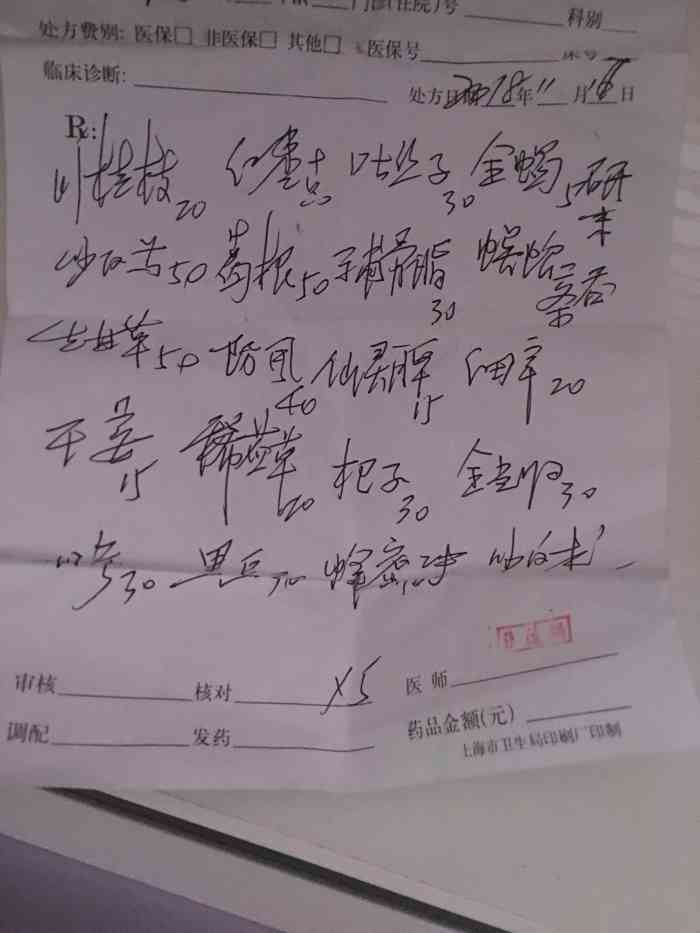 门诊(住院)号 科别
处方费别: 医保□ 非医保□ 其他□ 医保号 床号
临床诊断: 处方日期 2018年11月16日
R:
川桂枝20 红枣 吐丝子30 全蝎5研末
炒白芍50 葛根50 补骨脂30 蜈蚣二条
生甘草50 防风40 仙灵脾15 细辛20
干姜15 豨莶草20 杞子30 全当归30
川芎30 黑豆 蜂蜜
审核 核对 X5 医师
调配 发药 药品金额(元)
上海市卫生局印刷厂印制